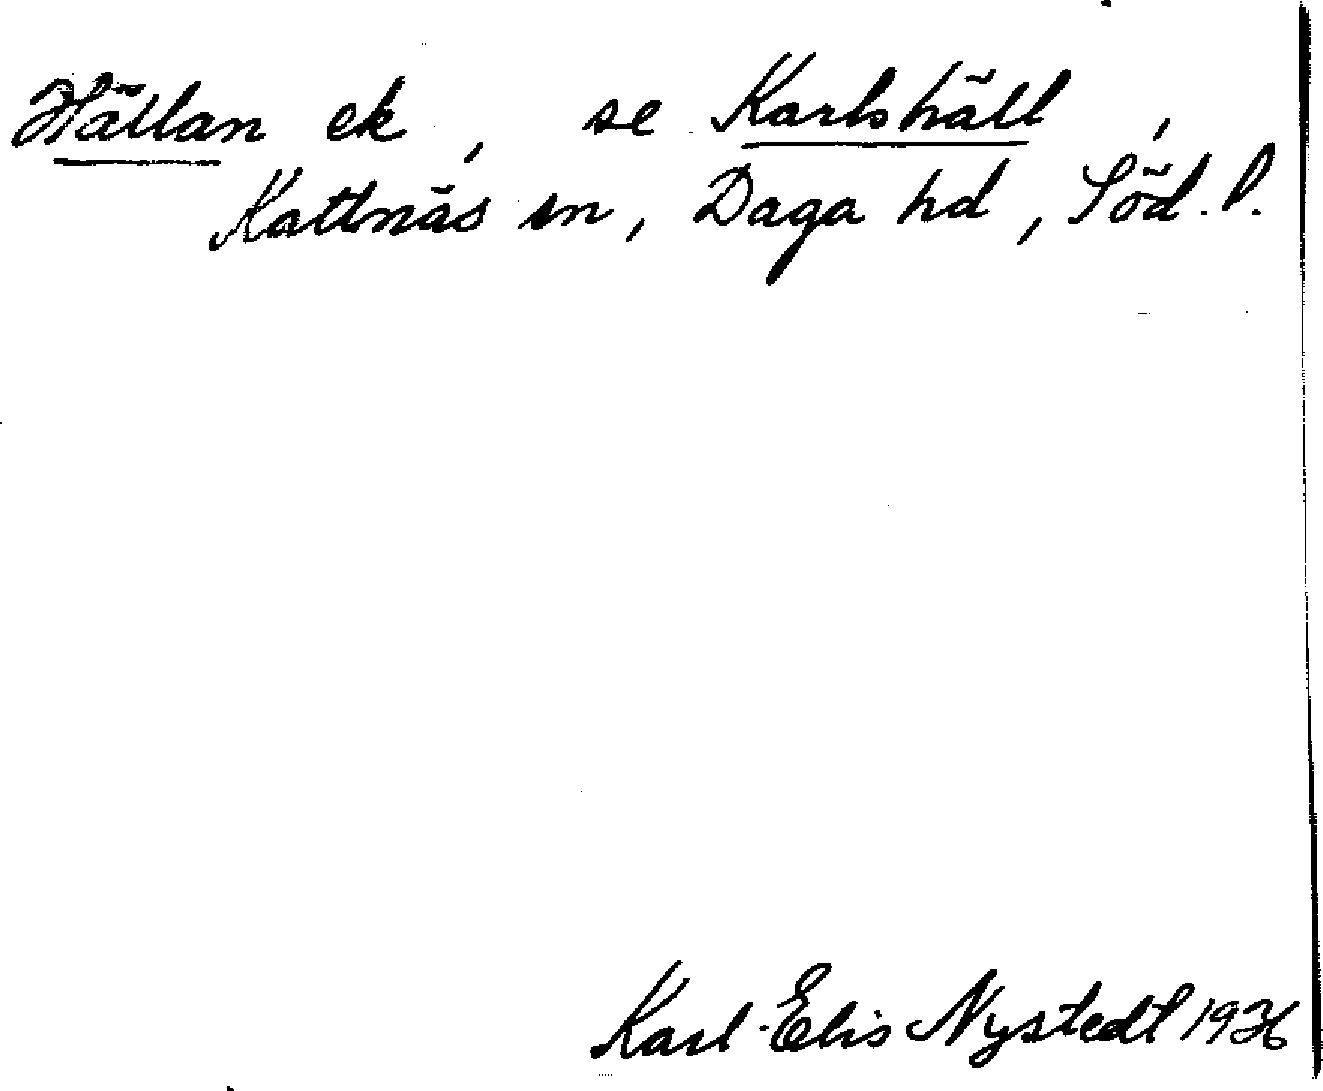 Hällan ek, se Karlshäll,
Kattnäs sn, Daga hd, Söd. l.
Karl-Elis Nystedt 1936